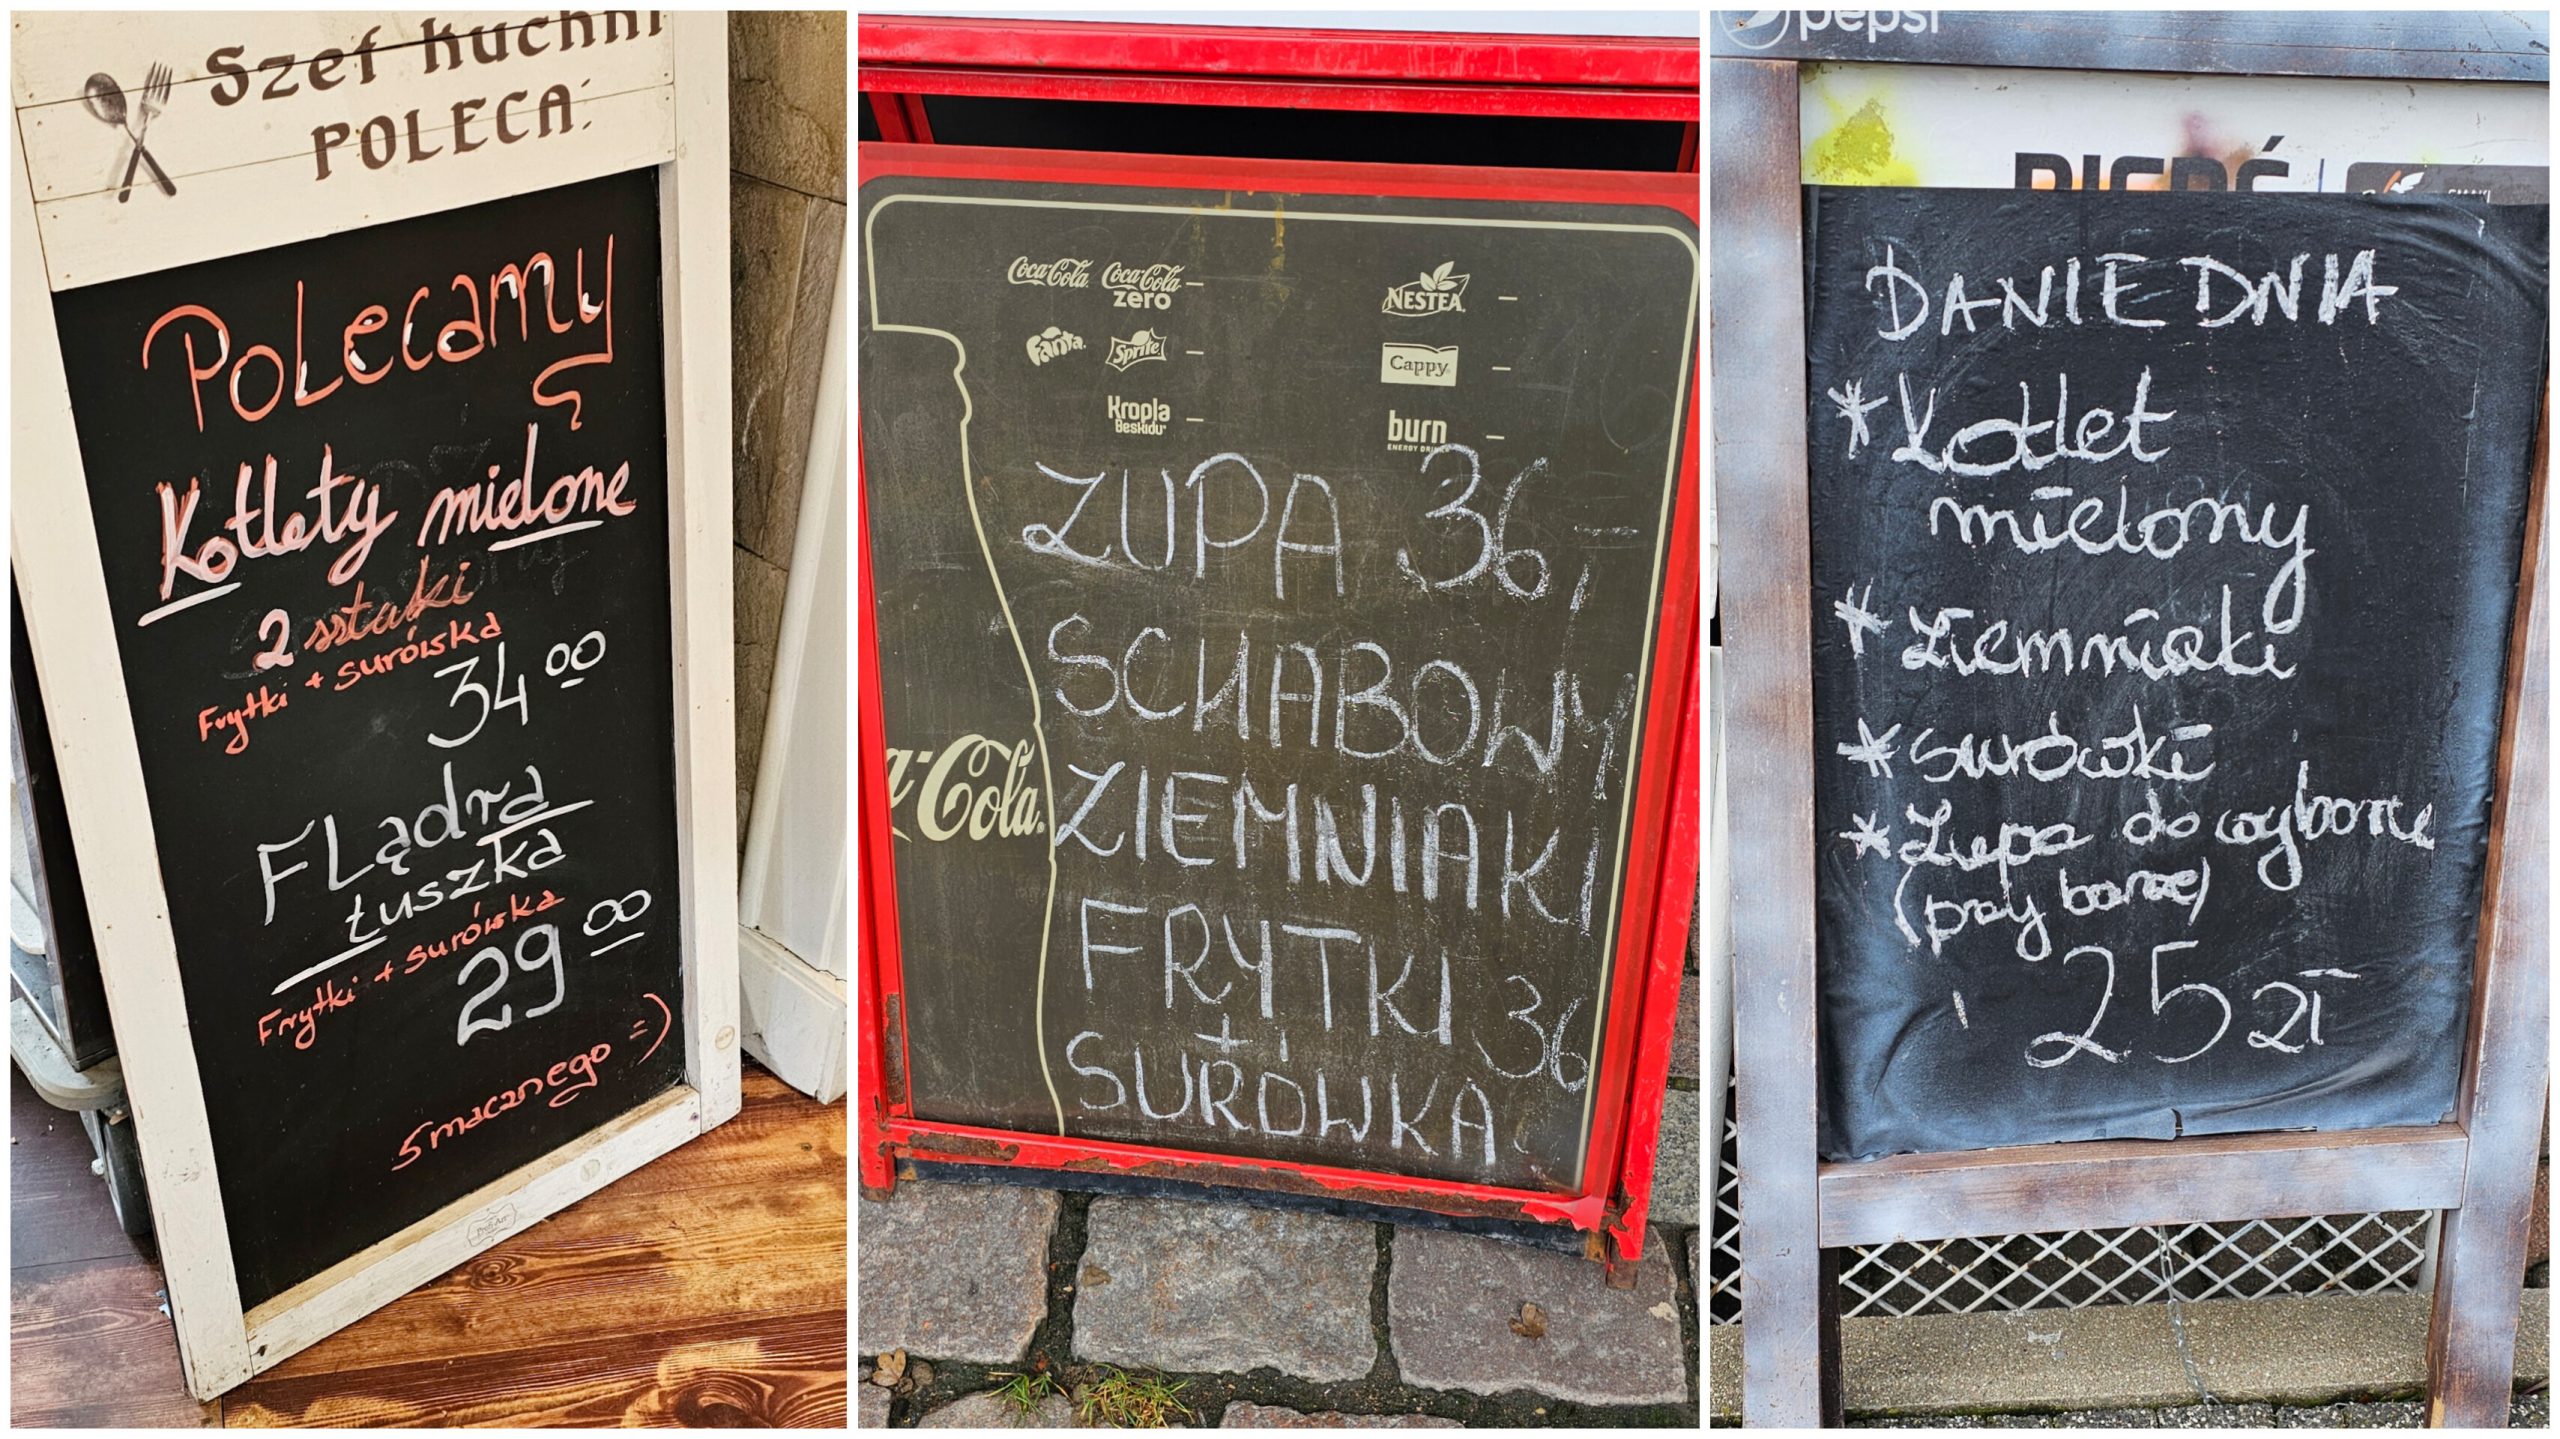 Szef kuchni
POLECA:
POLECAMY
Kotlety mielone
2 sztuki
Frytki + surówska
34 00
FLądra
tuszka
Frytki + surówska
29 00
Smacznego =)
Coca-Cola Coca-Cola zero –
NESTEA –
Fanta Sprite –
Cappy –
Kropla Beskidu –
burn –
ENERGY DRINK
a-Cola
ZUPA 36,-
SCHABOWY
ZIEMNIAKI
FRYTKI
+ 36
SURÓWKA
pepsi
DANIE DNIA
* Kotlet
mielony
* Ziemniaki
* surówki
* Zupa do wyboru
(przy barze)
25 zł